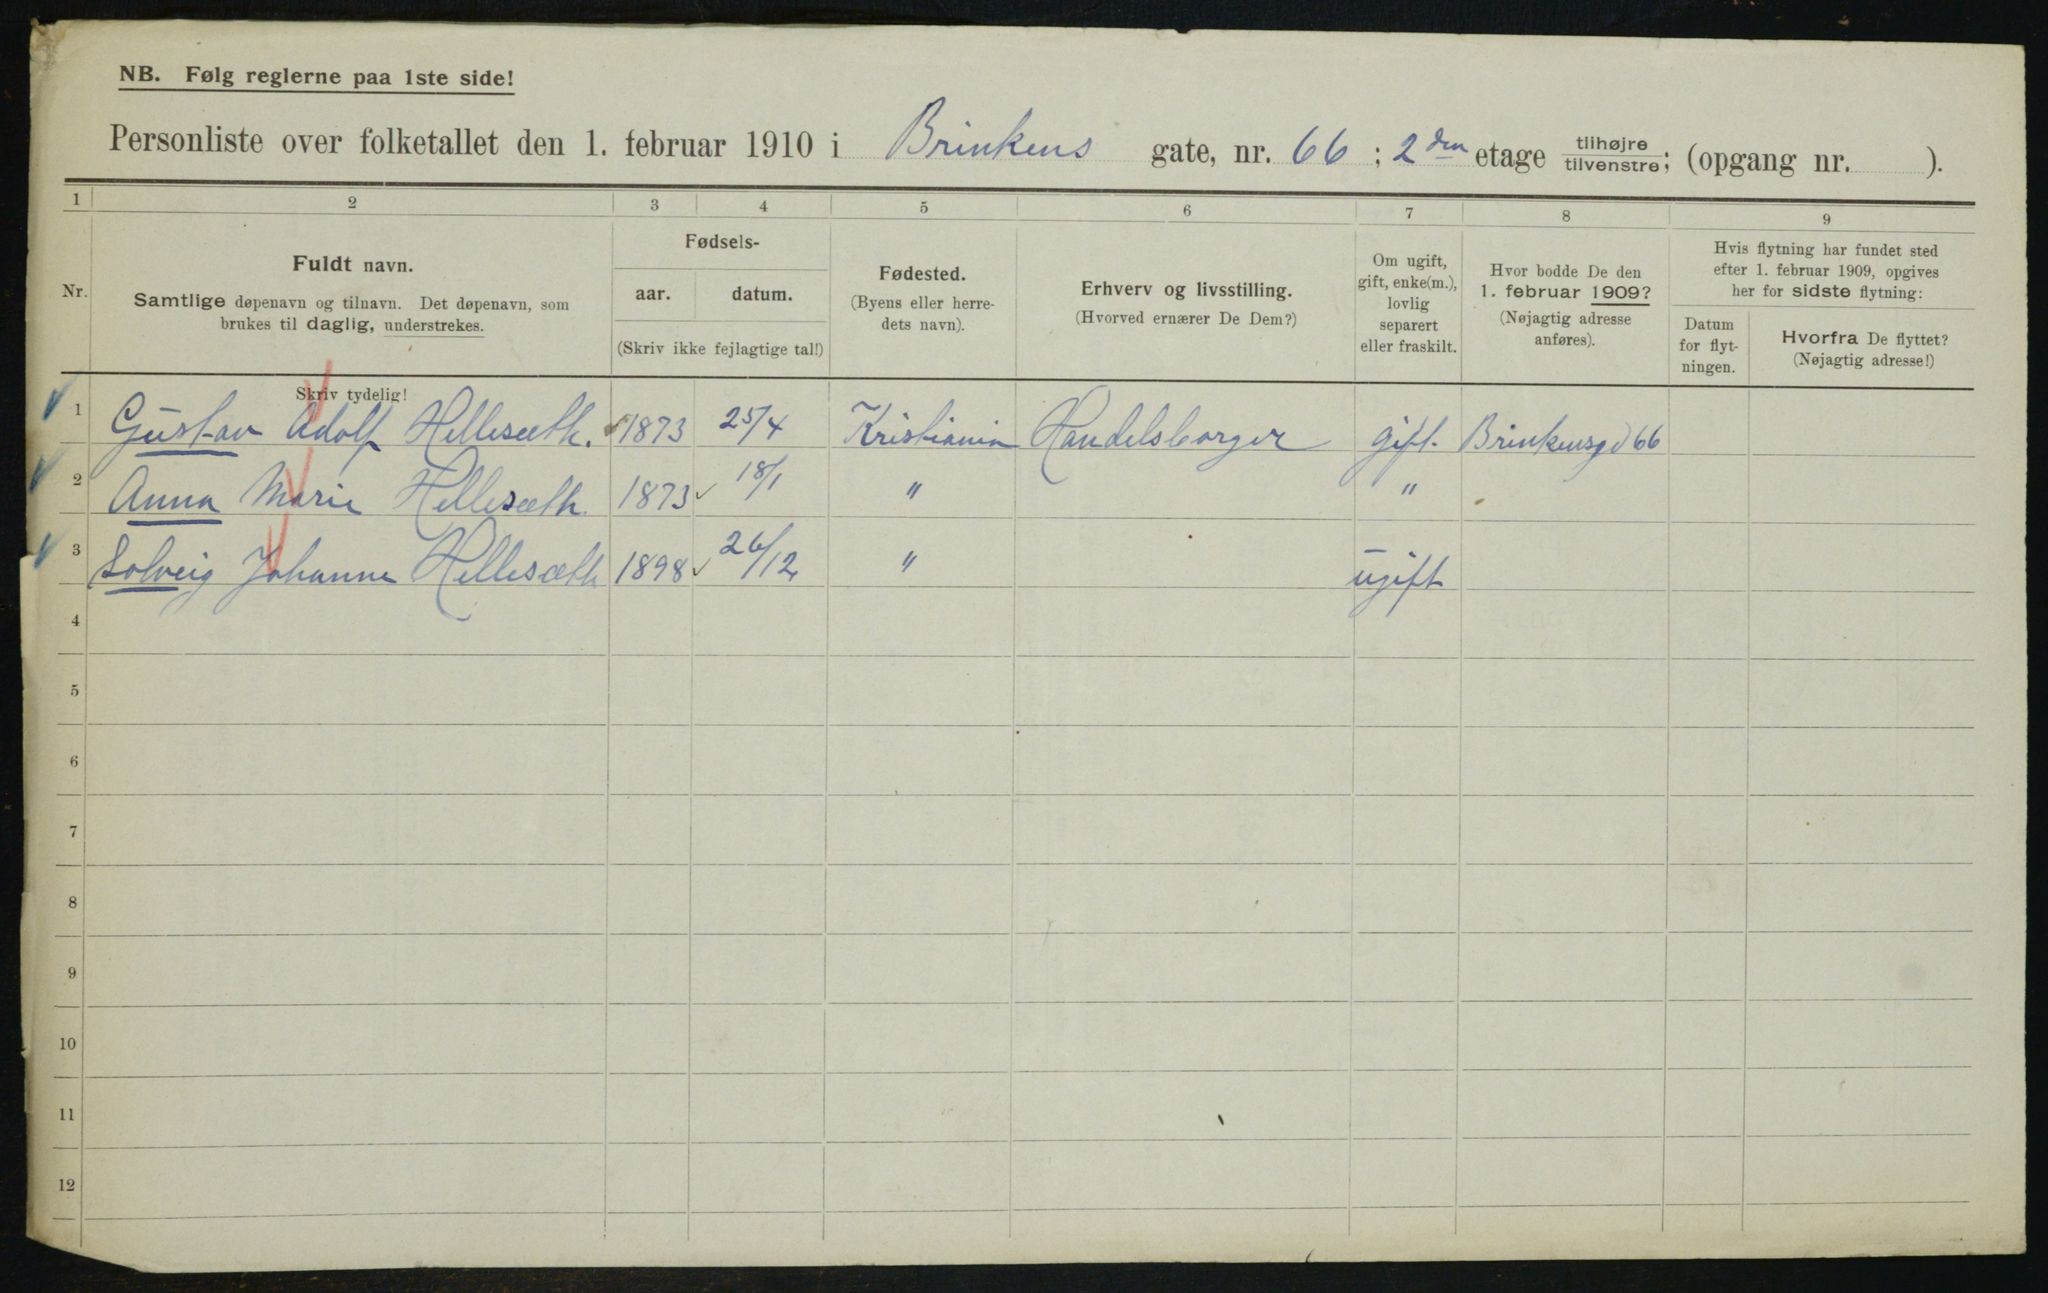 NB. Følg reglerne paa 1ste side!
Personliste over folketallet den 1. februar 1910 i Brinkens gate, nr. 66 ; 2den etage tilhøjre tilvenstre; (opgang nr. ).
1 2 3 4 5 6 7 8 9
Nr.
Fuldt navn.
Samtlige døpenavn og tilnavn. Det døpenavn, som
brukes til daglig, understrekes.
Skriv tydelig!
Fødsels-
aar. datum.
(Skriv ikke fejlagtige tal!)
Fødested.
(Byens eller herre-
dets navn).
Erhverv og livsstilling.
(Hvorved ernærer De Dem?)
Om ugift,
gift, enke(m.),
lovlig
separert
eller fraskilt.
Hvor bodde De den
1. februar 1909?
(Nøjagtig adresse
anføres).
Hvis flytning har fundet sted
efter 1. februar 1909, opgives
her for sidste flytning:
Datum
for flyt-
ningen.
Hvorfra De flyttet?
(Nøjagtig adresse!)
1 Gustav Adolf Hellesæth. 1873 25/4 Kristiania Handelsborger gift. Brinkensgd 66
2 Anna Marie Hellesæth. 1873 18/1 " "
3 Solveig Johanne Hellesæth 1898 26/12 " ugift
4
5
6
7
8
9
10
11
12